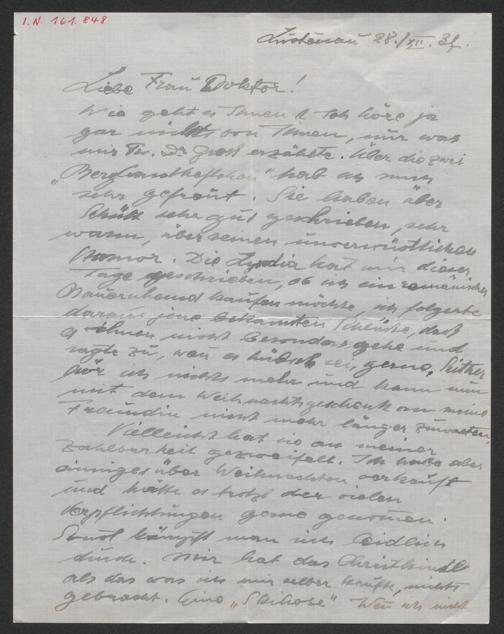 I.N. 161.848
Lustenau 28./XII. 31.
Liebe Frau Doktor!
Wie geht es Ihnen? Ich höre ja
gar nichts von Ihnen, nur was
mir Fr. Dr. erzählte. Über die zwei
„ " hab ich mich
sehr gefreut. Sie haben über
Schütt sehr gut geschrieben, sehr
warm, über seinen unverwüstlichen
Humor. Die Lydia hat mir dieser
Tage geschrieben, ob ich ein rumänisches
Bauernhemd kaufen möchte, ich folgerte
daraus jene bekannten Schlüsse, daß
es ihnen nicht besonders gehe und
sagte zu, wenn es hübsch sei, gerne. Seither
hör ich nichts mehr und kann nun
mit dem Weihnachtsgeschenk an meine
Freundin nicht mehr länger zuwarten.
Vielleicht hat sie an meiner
Zahlbarkeit gezweifelt. Ich habe aber
einiges über Weihnachten verkauft
und hätte es trotz der vielen
Verpflichtungen gerne genommen.
Sonst kämpft man sich leidlich
durch. Mir hat das Christkindl
als das was ich mir selber kaufte, nichts
gebracht. Eine „ " Wenn ich nicht